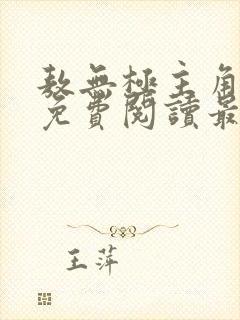 敖無極主角
免費閱讀最
王萍